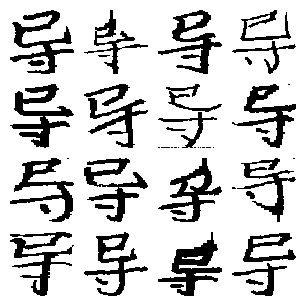 导导导导
导导导导
导导导导
导导导导